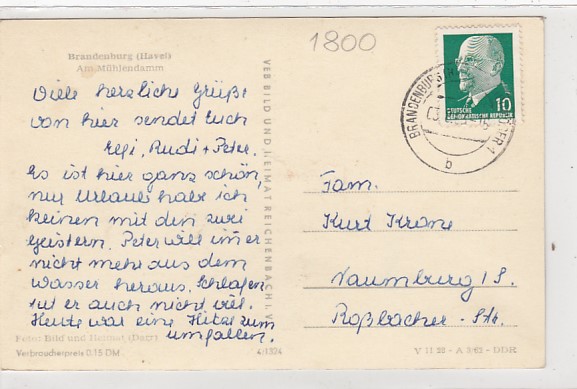 1800
Brandenburg (Havel)
Am Mühlendamm
Viele herzliche Grüße
von hier sendet Euch
Elfi, Rudi + Peter.
Es ist hier ganz schön,
nur Urlaub habe ich
keinen mit den zwei
Geistern. Peter will im er
nicht mehr aus dem
Wasser heraus. Schlafen
tut er auch nicht viel.
Heute war eine Hitze zum
umfallen.
Foto: Bild und Heimat (Darr)
Verbraucherpreis 0,15 DM
4/1324
VEB BILD UND HEIMAT REICHENBACH I. V.
BRANDENBURG
b
10
DEUTSCHE
DEMOKRATISCHE REPUBLIK
Fam.
Kurt Krone
Naumburg/S.
Roßbacher-Str.
V 11 28 - A 3/62 - DDR